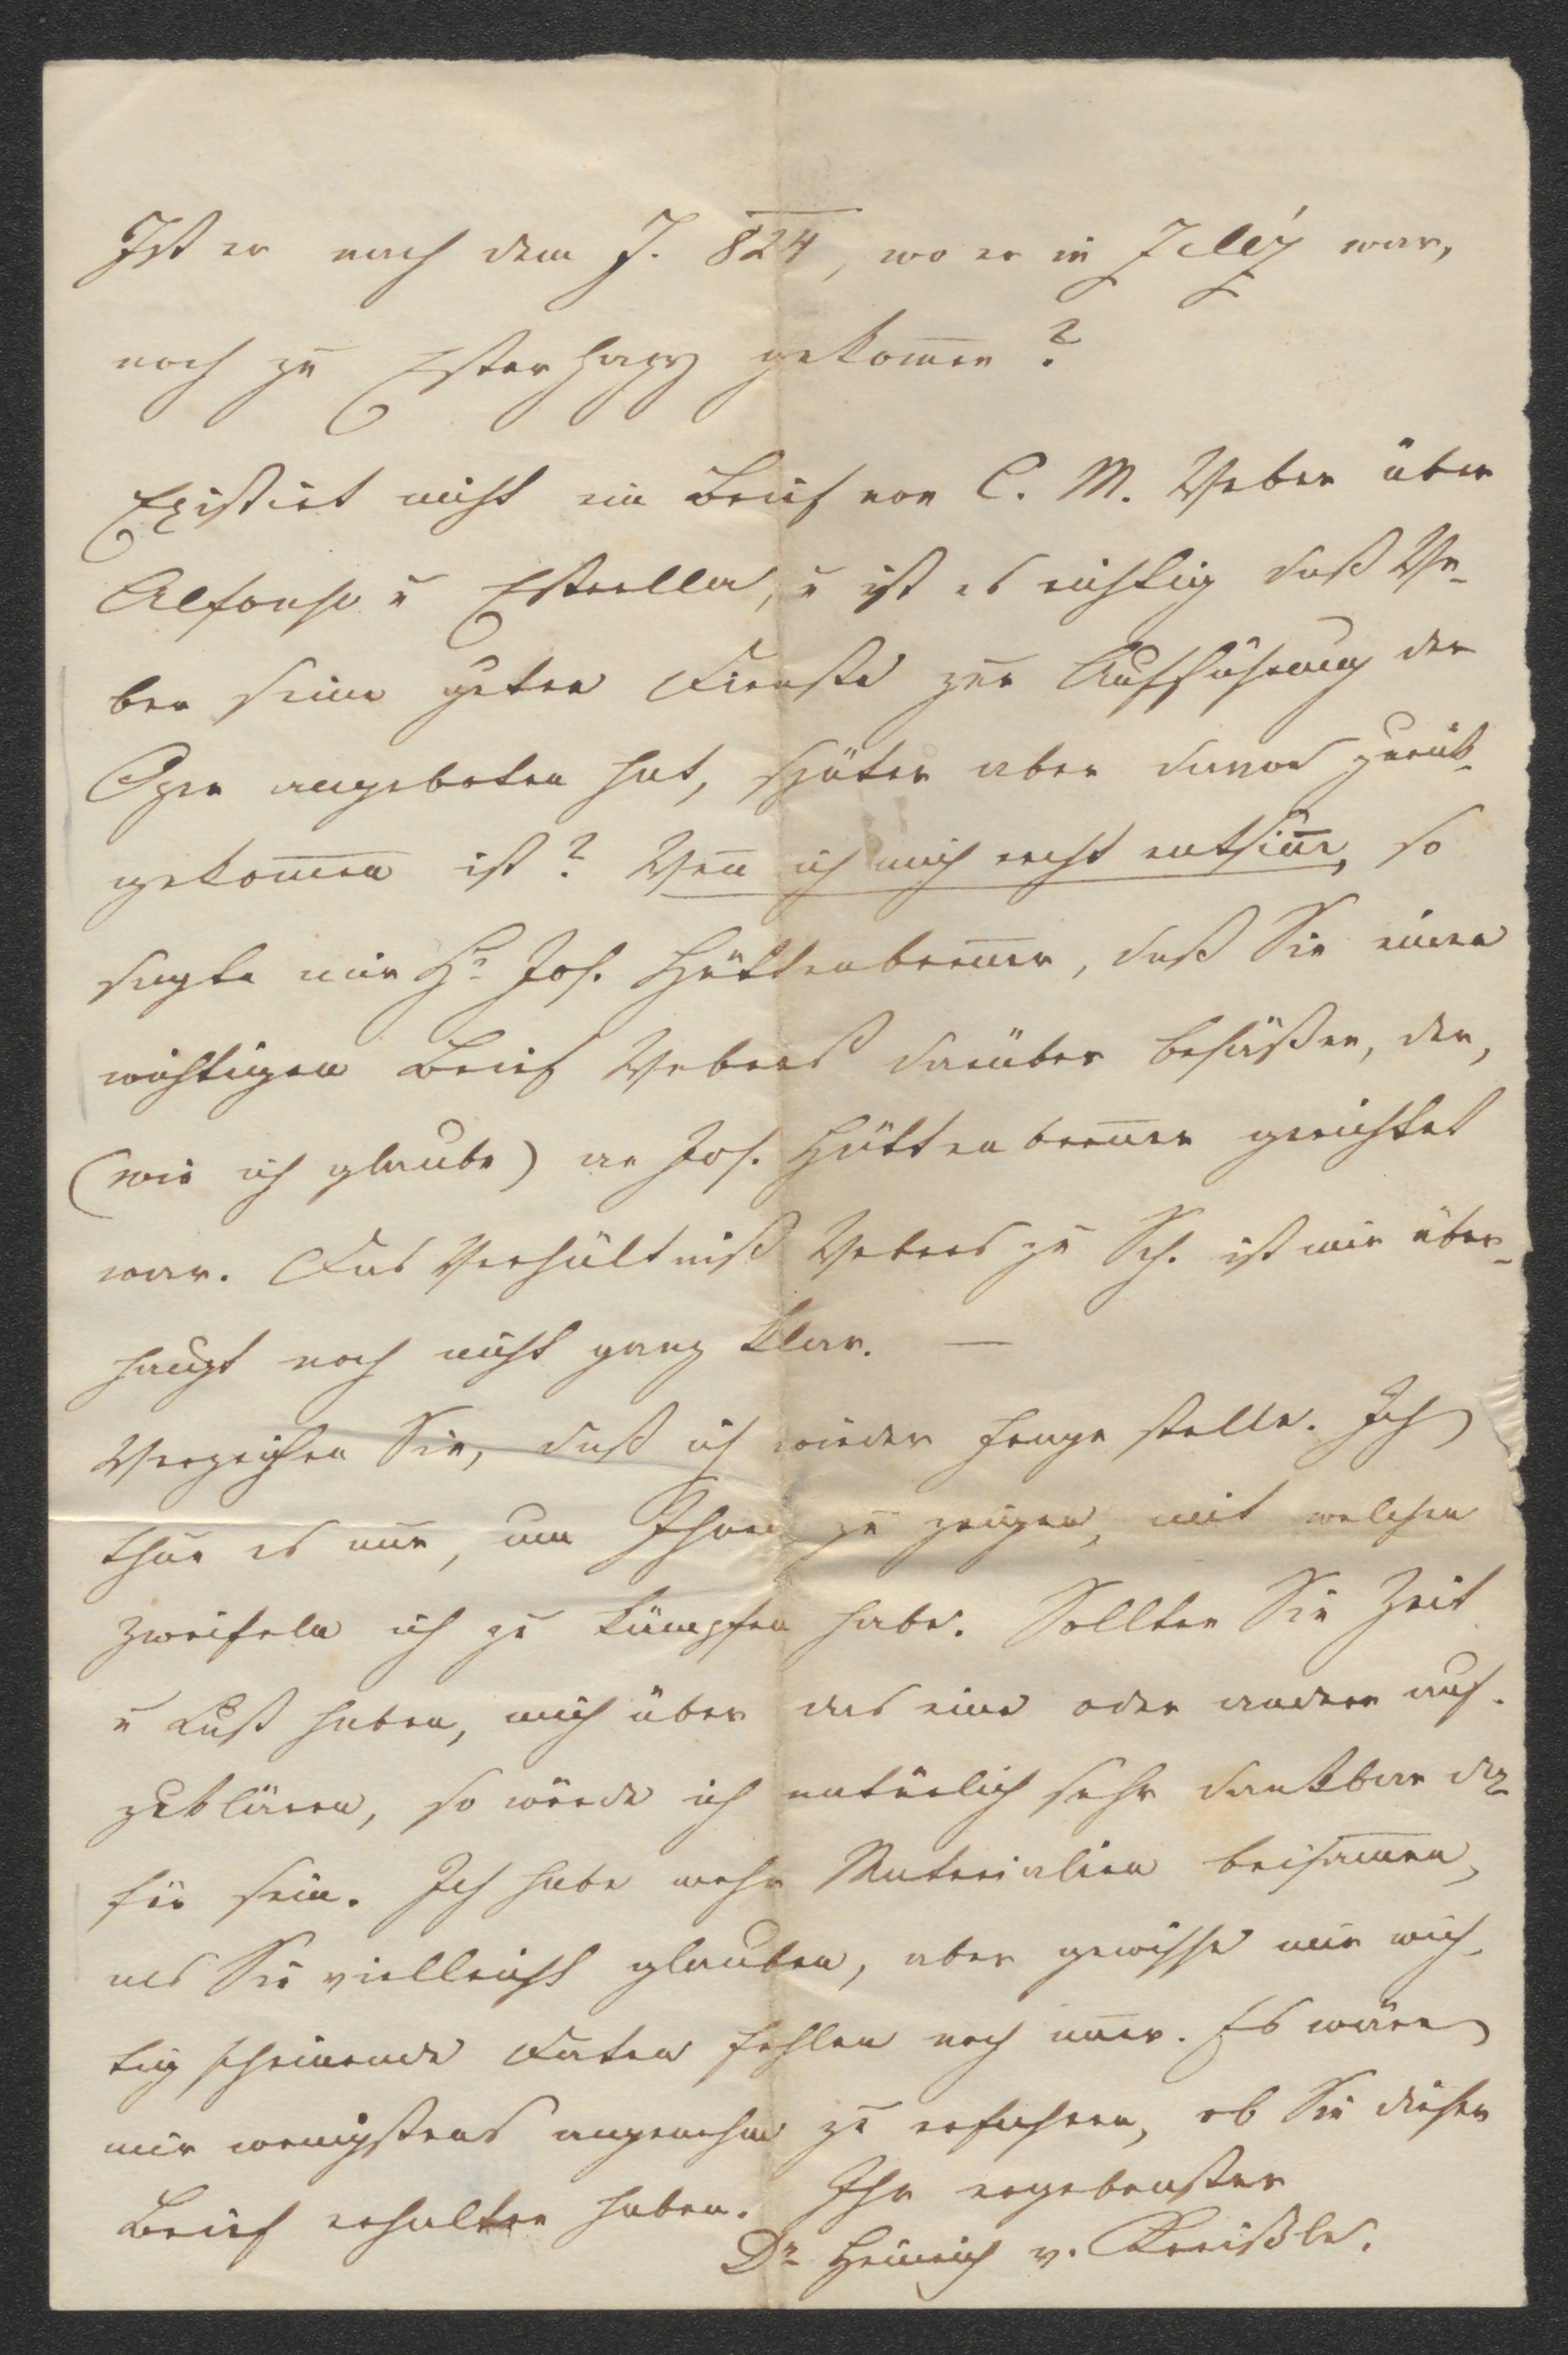 Ist er nach dem J. 824, wo er in Zeléz war,
noch zu Esterhazy gekom̅en?
Existirt nicht ein Brief von C. M. Weber über
Alfonso u Estrella, u ist es richtig daß We-
ber seine guten Dienste zur Aufführung der
Oper angeboten hat, später aber davon zurük-
gekom̅en ist? Wen̅ ich mich recht entsin̅e, so
sagte mir Hr Jos. Hüttenbren̅er, daß Sie einen
wichtigen Brief Webers darüber besäßen, der,
(wie ich glaube) an Jos. Hüttenbren̅er gerichtet
war. Das Verhältniß Webers zu Sch. ist mir über-
haupt noch nicht ganz klar. —
Verzeihen Sie, daß ich wieder Frage stelle. Ich
thue es nur, um Ihnen zu zeigen, mit welchen
Zweifeln ich zu kämpfen habe. Sollten Sie Zeit
u Lust haben, mich über das eine oder andere auf-
zuklären, so würde ich natürlich sehr dankbar da-
für sein. Ich habe mehr Materialien beisam̅en,
als Sie vielleicht glauben, aber gewisse mir wich-
tig scheinende Daten fehlen noch im̅er. Es wäre
mir wenigstens angenehm zu erfahren, ob Sie diesen
Brief erhalten haben. Ihr ergebenster
Dr Heinrich v. Kreißle.